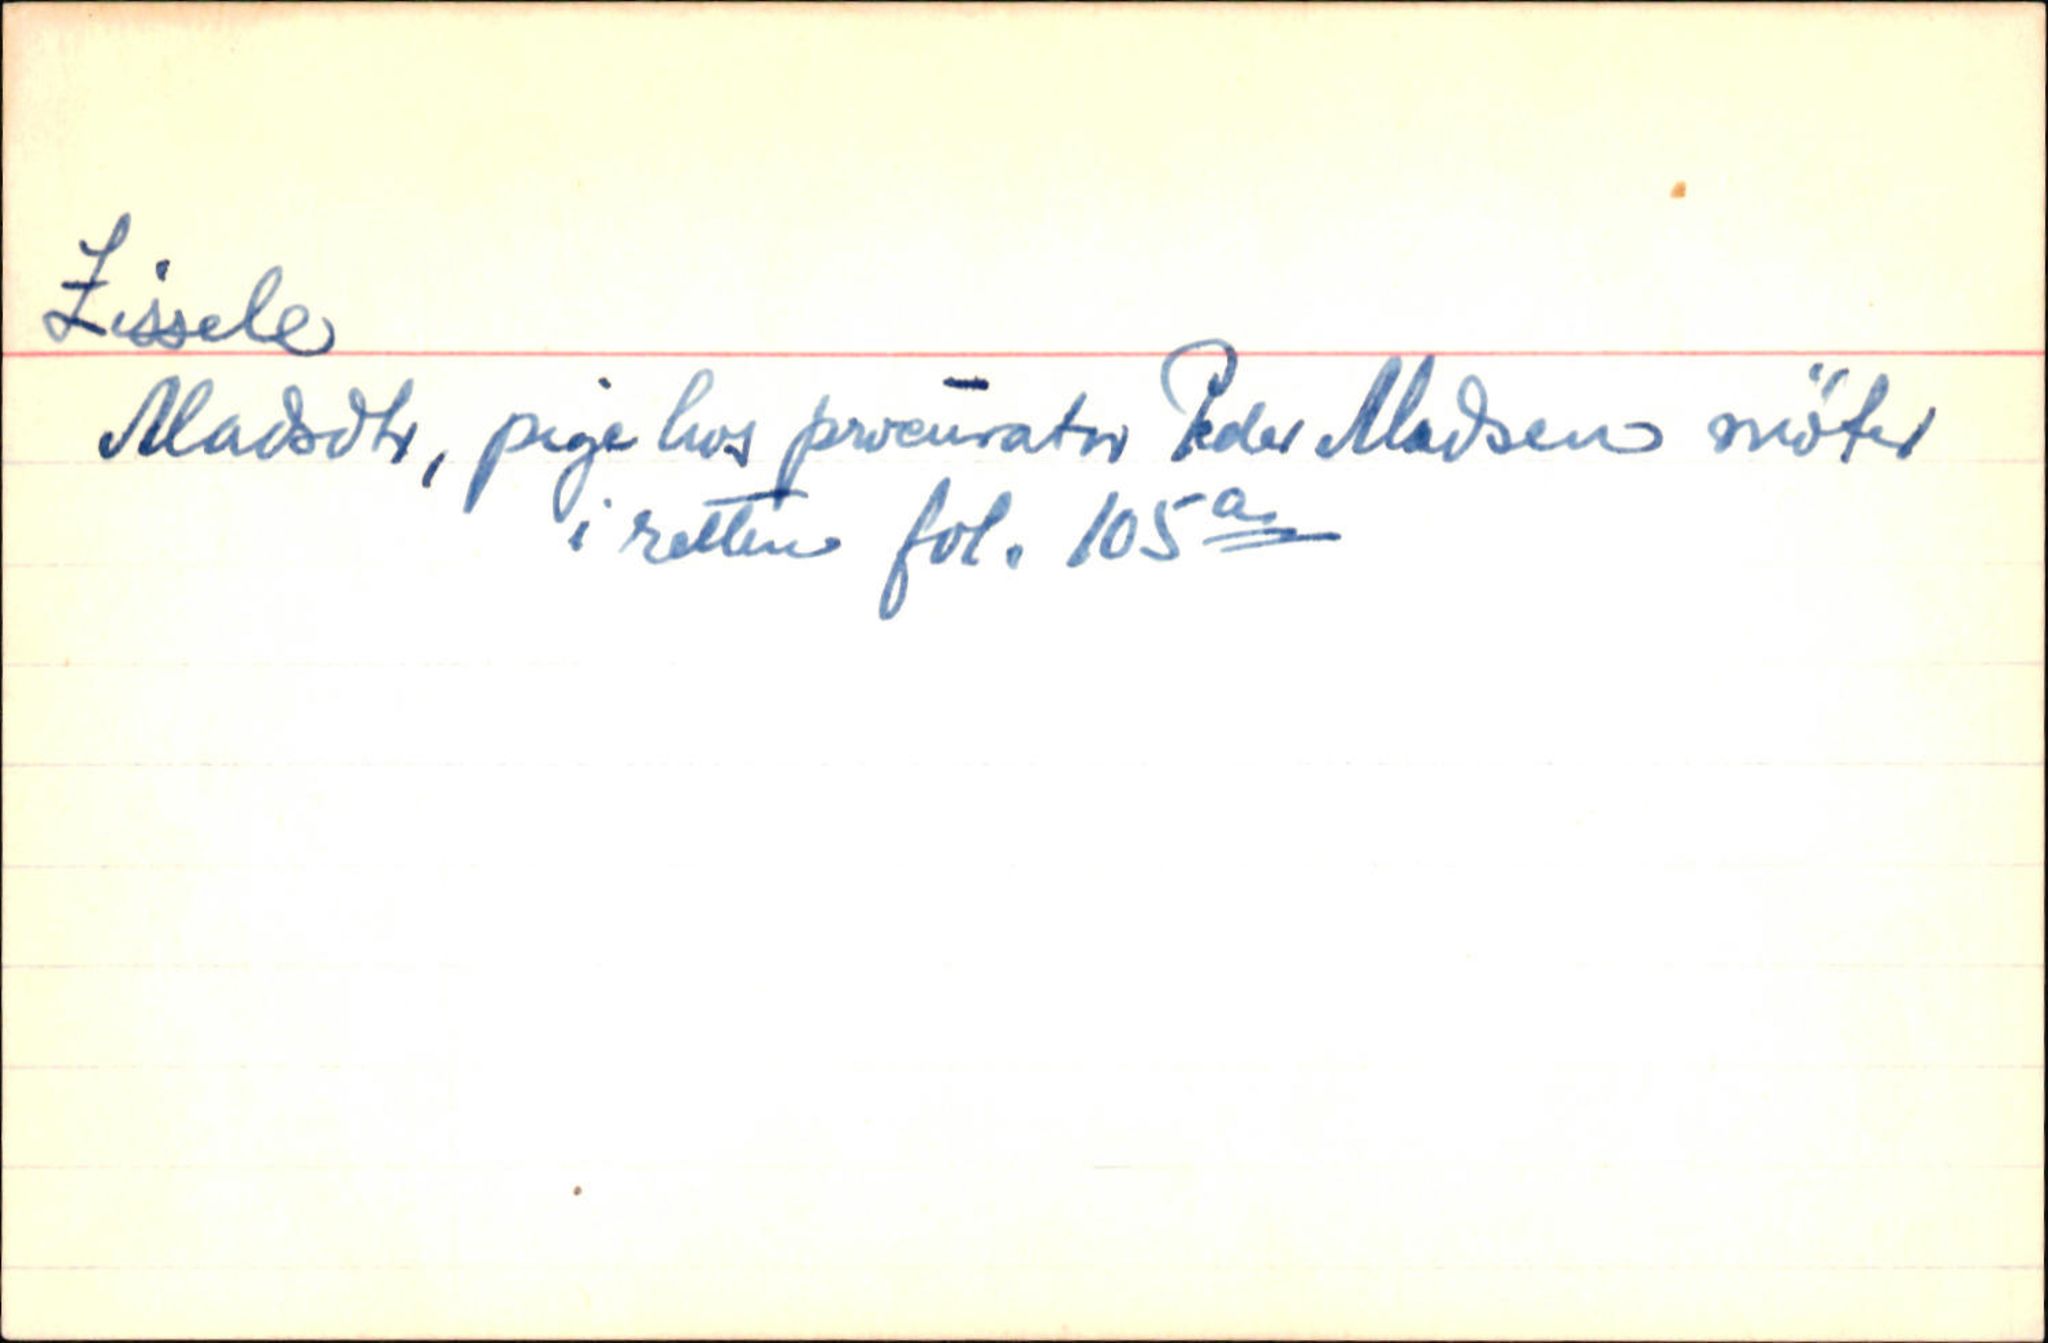 Zissele
Madsdtr, pige hos procurator Peder Madsen möter
i retten fol. 105a